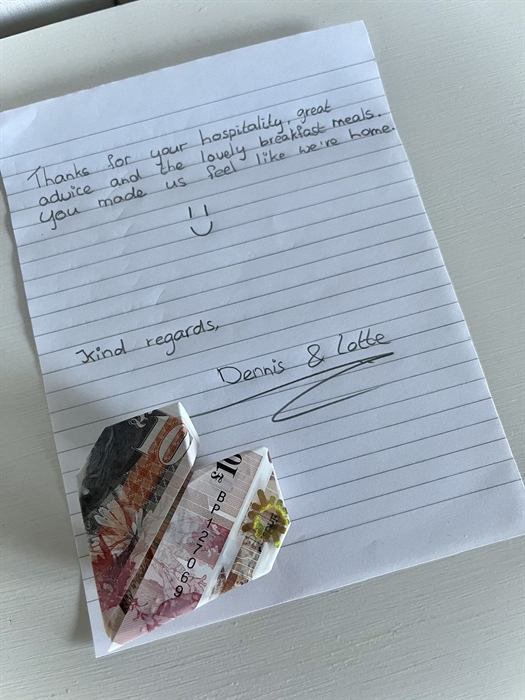 Thanks for your hospitality, great
advice and the lovely breakfast meals.
You made us feel like we're home.
Kind regards,
Dennis & Lotte
£10
£10
BP127069